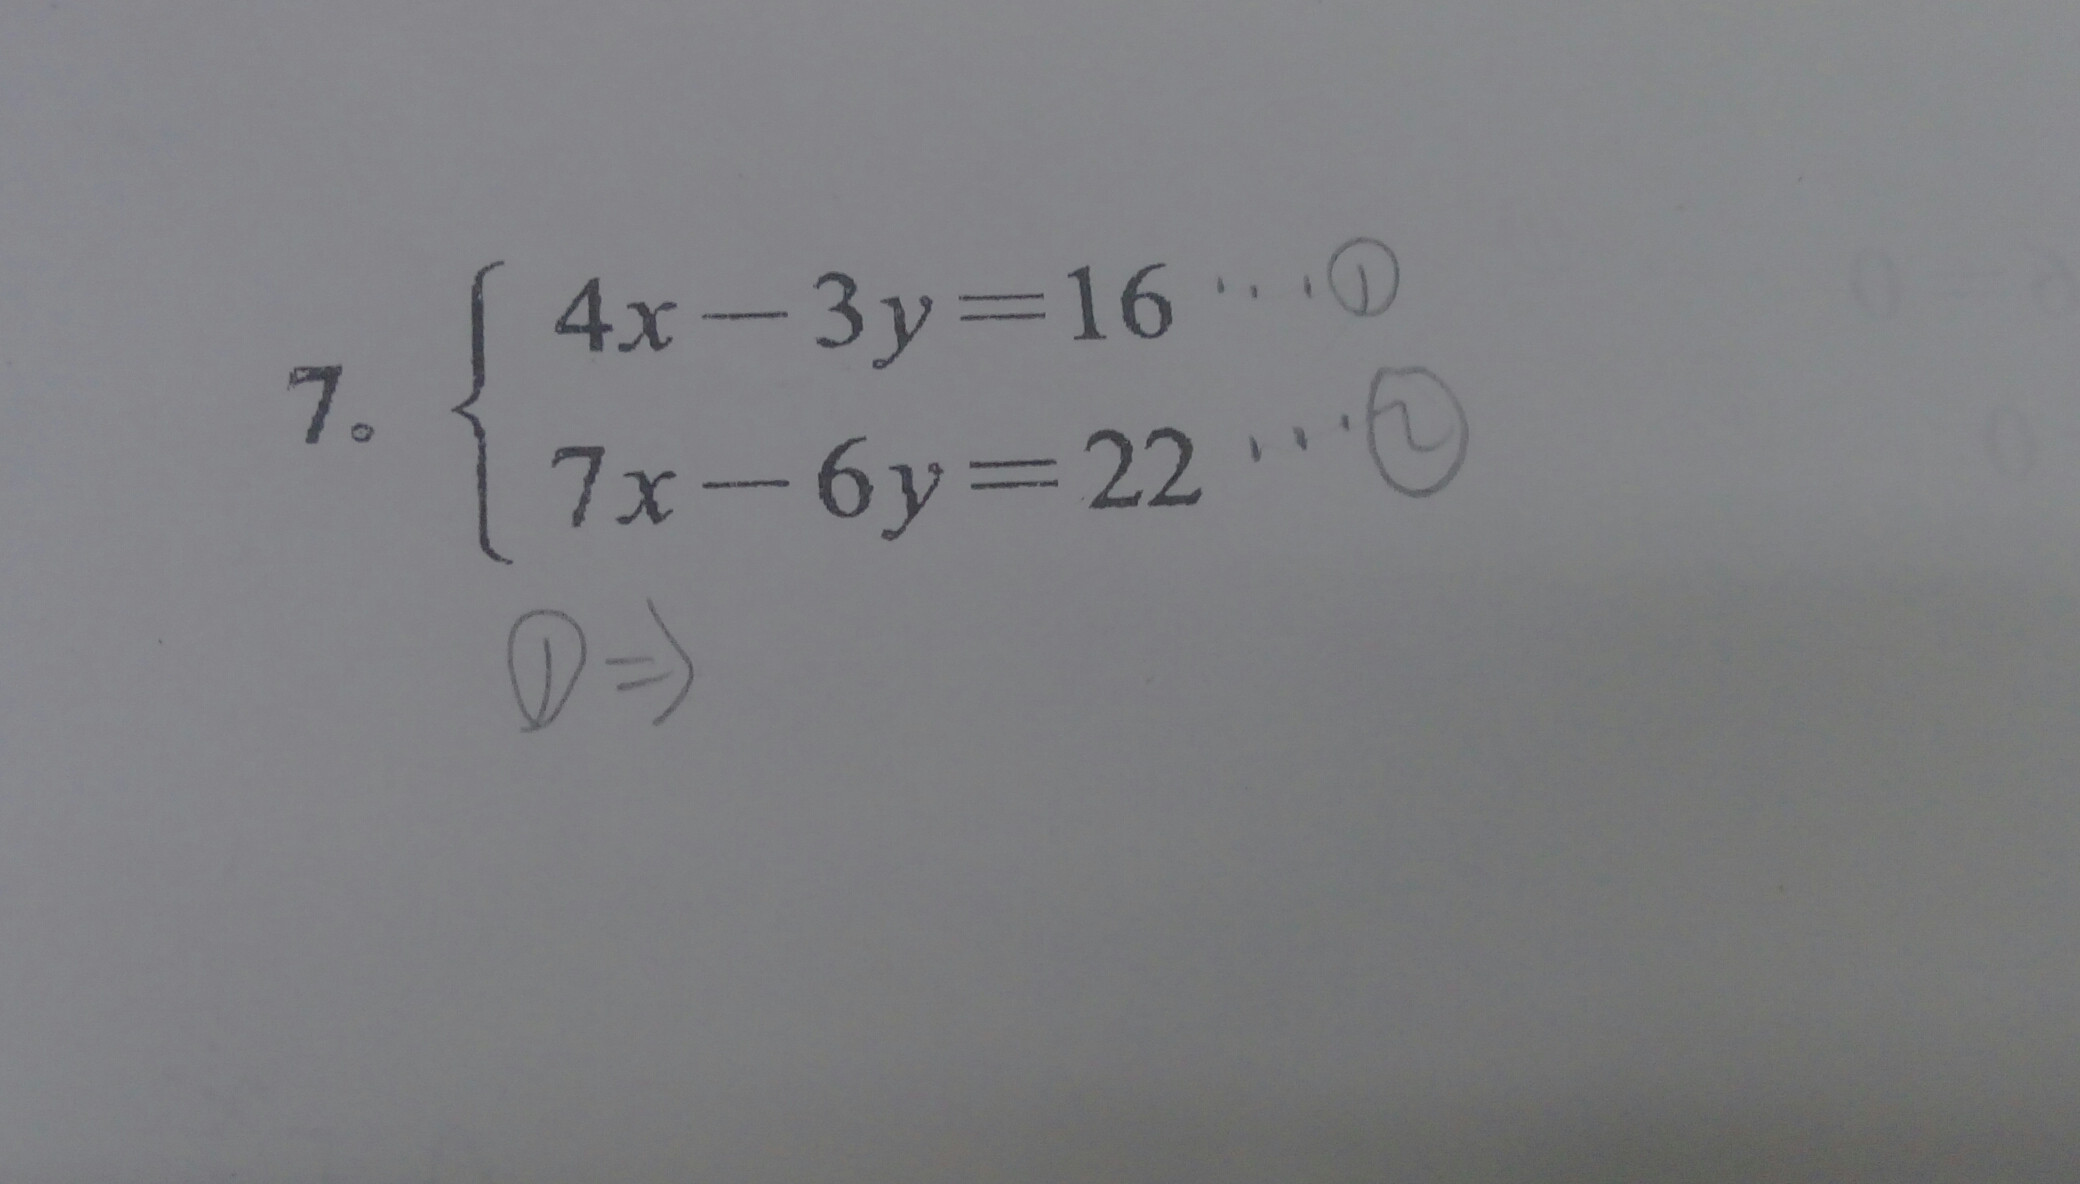 7. { 4x－3y＝16 ...①
7x－6y＝22 ...②
①⇒